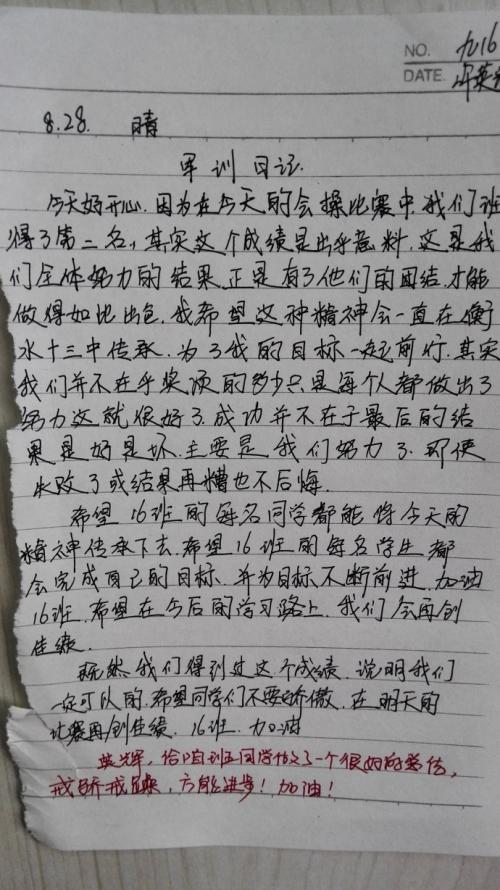 NO. 九16
DATE.
8.28. 晴
军训日记.
今天好开心.因为在今天的会操比赛中.我们班
得了第二名,其实这个成绩是出乎意料.这是我
们全体努力的结果.正是有了他们的团结.才能
做得如比出色.我希望这种精神会一直在衡
水十三中传承.为了我的目标一起前行.其实
我们并不在乎奖项的多少只是每个人都做出了
努力这就很好了.成功并不在于最后的结
果是好是坏.主要是我们努力了.即使
失败了或结果再糟也不后悔.
希望16班的每名同学都能将今天的
精神传承下去.希望16班的每名学生都
会完成自己的目标.并为目标不断前进.加油
16班.希望在今后的学习路上.我们会再创
佳绩.
既然我们得到过这个成绩.说明我们
一定可以的.希望同学们不要骄傲.在明天的
比赛再创佳绩.16班.加油
英辉,给咱班同学做了一个很好的总结,
戒骄戒躁,方能进步!加油!